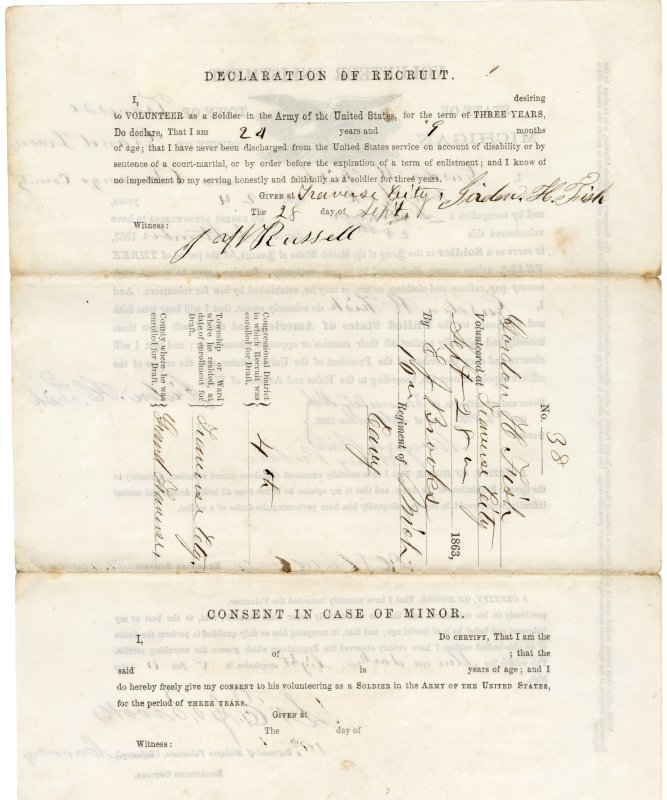 DECLARATION OF RECRUIT.
I, desiring
to VOLUNTEER as a Soldier in the Army of the United States, for the term of THREE YEARS,
Do declare, That I am 24 years and 9 months
of age; that I have never been discharged from the United States service on account of disability or by
sentence of a court-martial, or by order before the expiration of term of enlistment; and I know of
no impediment to my serving honestly and faithfully as a soldier for three years.
GIVEN at Traverse City, H. Fish
The 28 day of Sept.
Witness:
Russell
No. 38
H Fish
Volunteered at Traverse City
Sept 28 1863,
By E J Brooks
Regiment of Mich
Cavy
Congressional District
in which Recruit was
enrolled for Draft.
4th
Township or Ward
where he resided, at
date of enrollment for
Draft.
Traverse City.
County where he was
enrolled for Draft.
Grand Traverse,
CONSENT IN CASE OF MINOR.
I, Do CERTIFY, That I am the
of ; that the
said is years of age; and I
do hereby freely give my CONSENT to his volunteering as a SOLDIER in the ARMY OF THE UNITED STATES,
for the period of THREE YEARS.
GIVEN at
The day of
Witness: